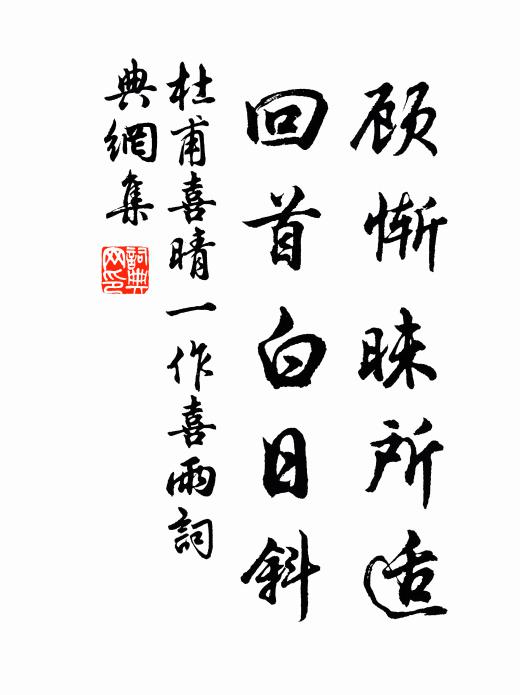 顾惭昧所适
回首白日斜
杜甫喜晴一作喜雨詞
典網集
詞典
网印